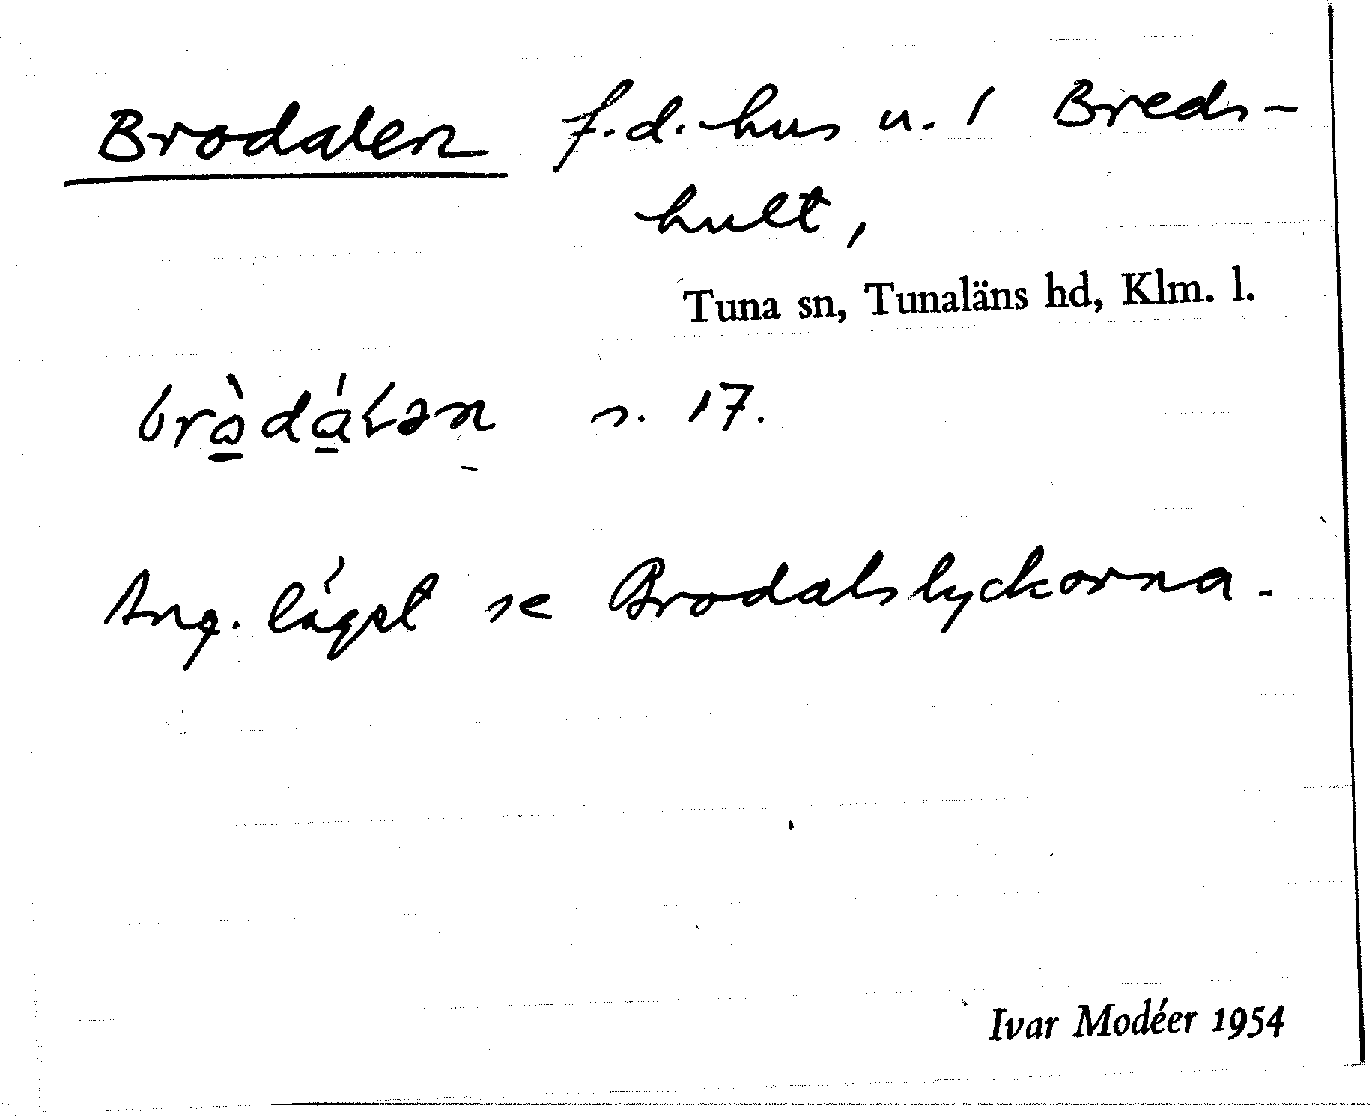 Brodalen f.d. hus u. 1 Breds-
hult,
Tuna sn, Tunaläns hd, Klm. l.
brò̱dá̱lən s. 17.
Ang. läget se Brodalslyckorna.
Ivar Modéer 1954